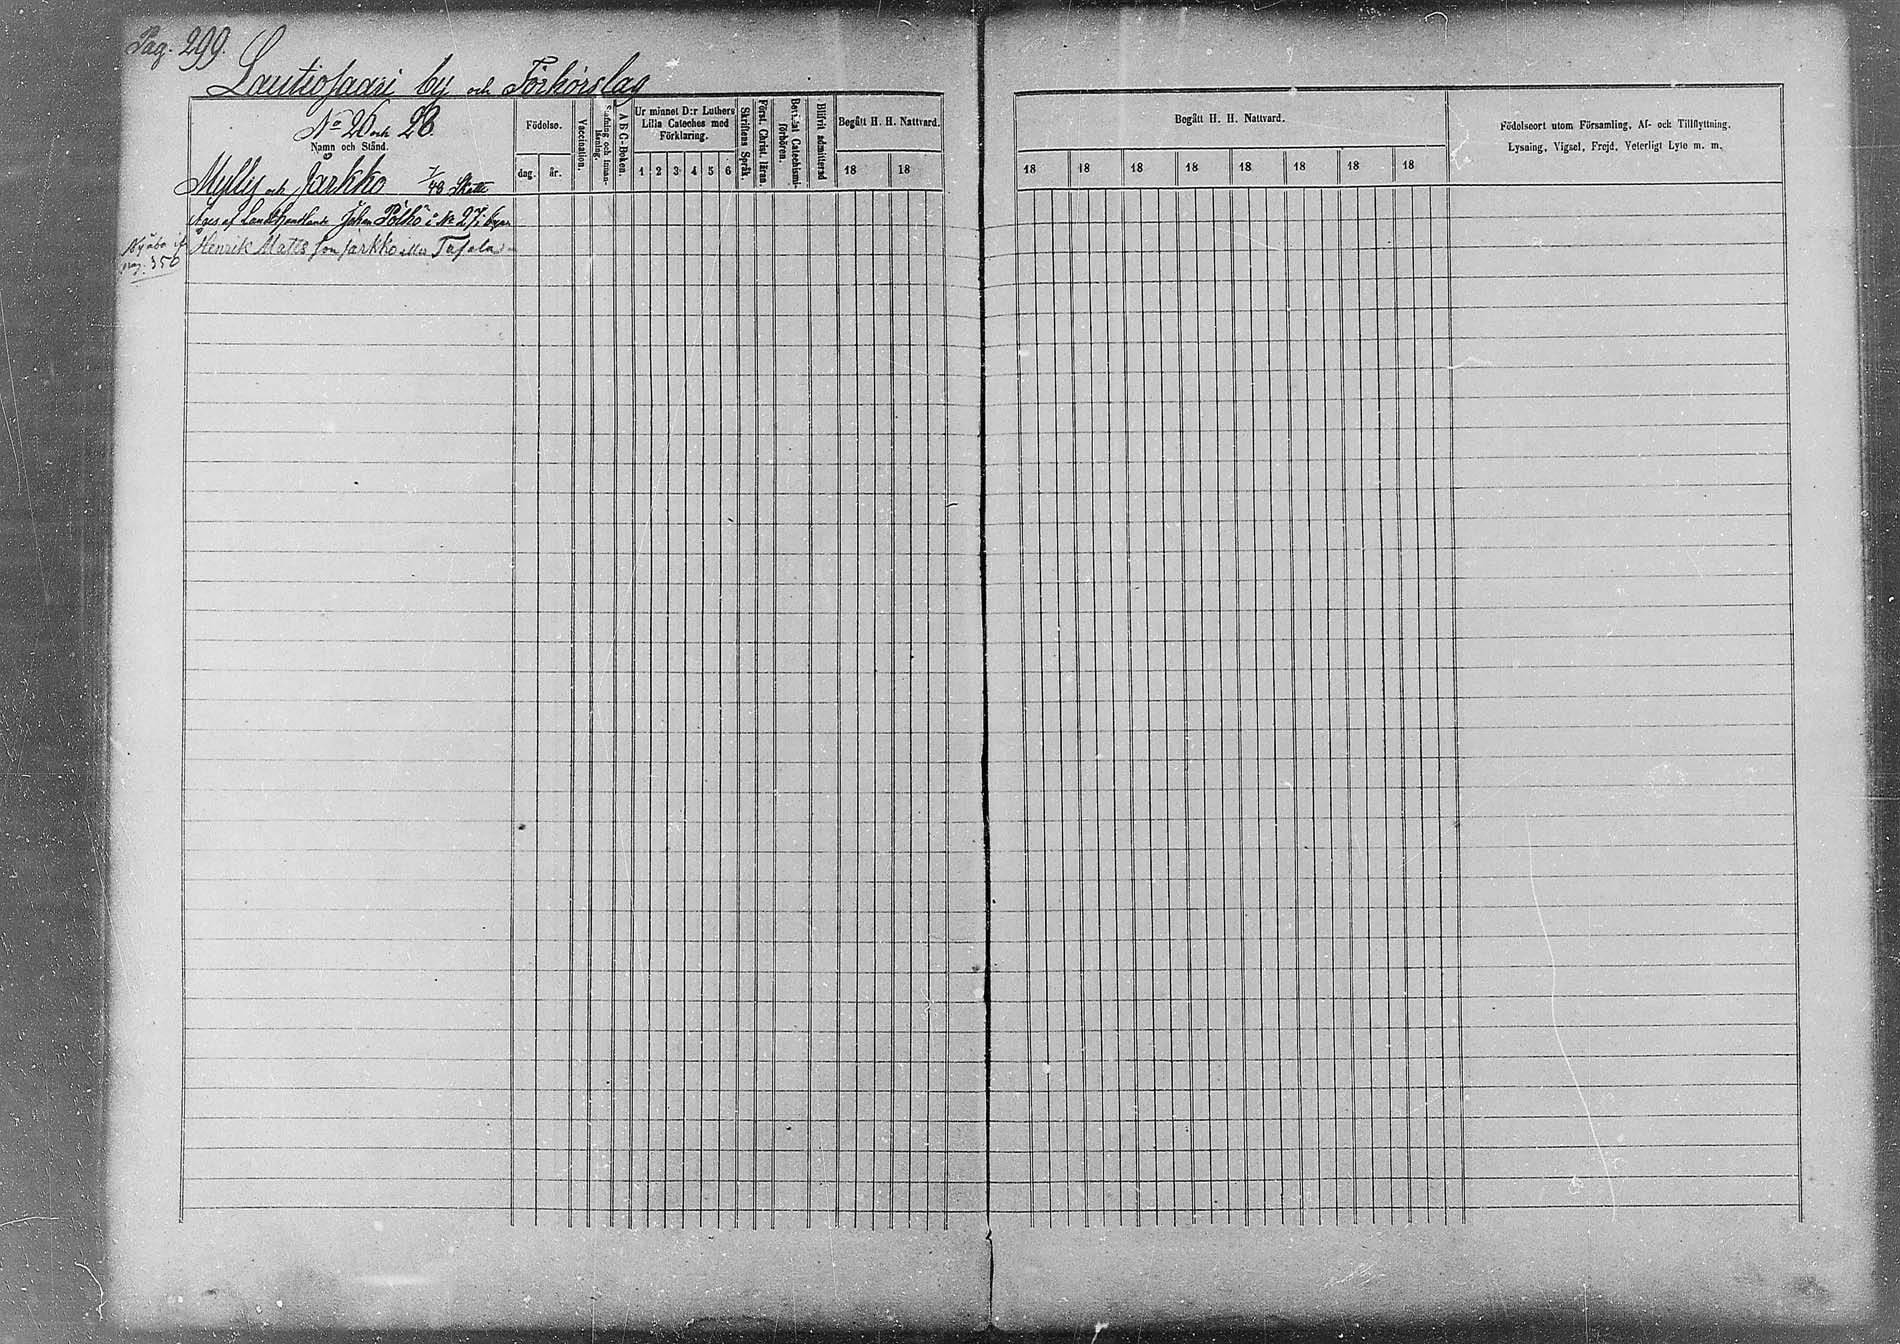 Pag. 299.
Lautiosaari by och Förhörslag
No 26 och 28
Namn och Stånd.
Mylly och Jarkko 7/48 Skatte
Eges af Landthandlande Johan Pölhö i No 27 i byn
Henrik Mats son Jarkko eller Tapola
Nyåbo
pag. 350
Födelse.
dag.
år.
Vaccination.
Stafning och innan-
läsning.
A B C-Boken.
Ur minnet D:r Luthers
Lilla Cateches med
Förklaring.
1 2 3 4 5 6
Skriftens Språk.
Först. Christ. läran.
Bevistat Catechismi-
förhören.
Blifvit admitterad
Begått H. H. Nattvard.
18 18
Begått H. H. Nattvard.
18 18 18 18 18 18 18 18
Födelseort utom Församling, Af- och Tillflyttning,
Lysning, Vigsel, Frejd, Veterligt Lyte m. m.